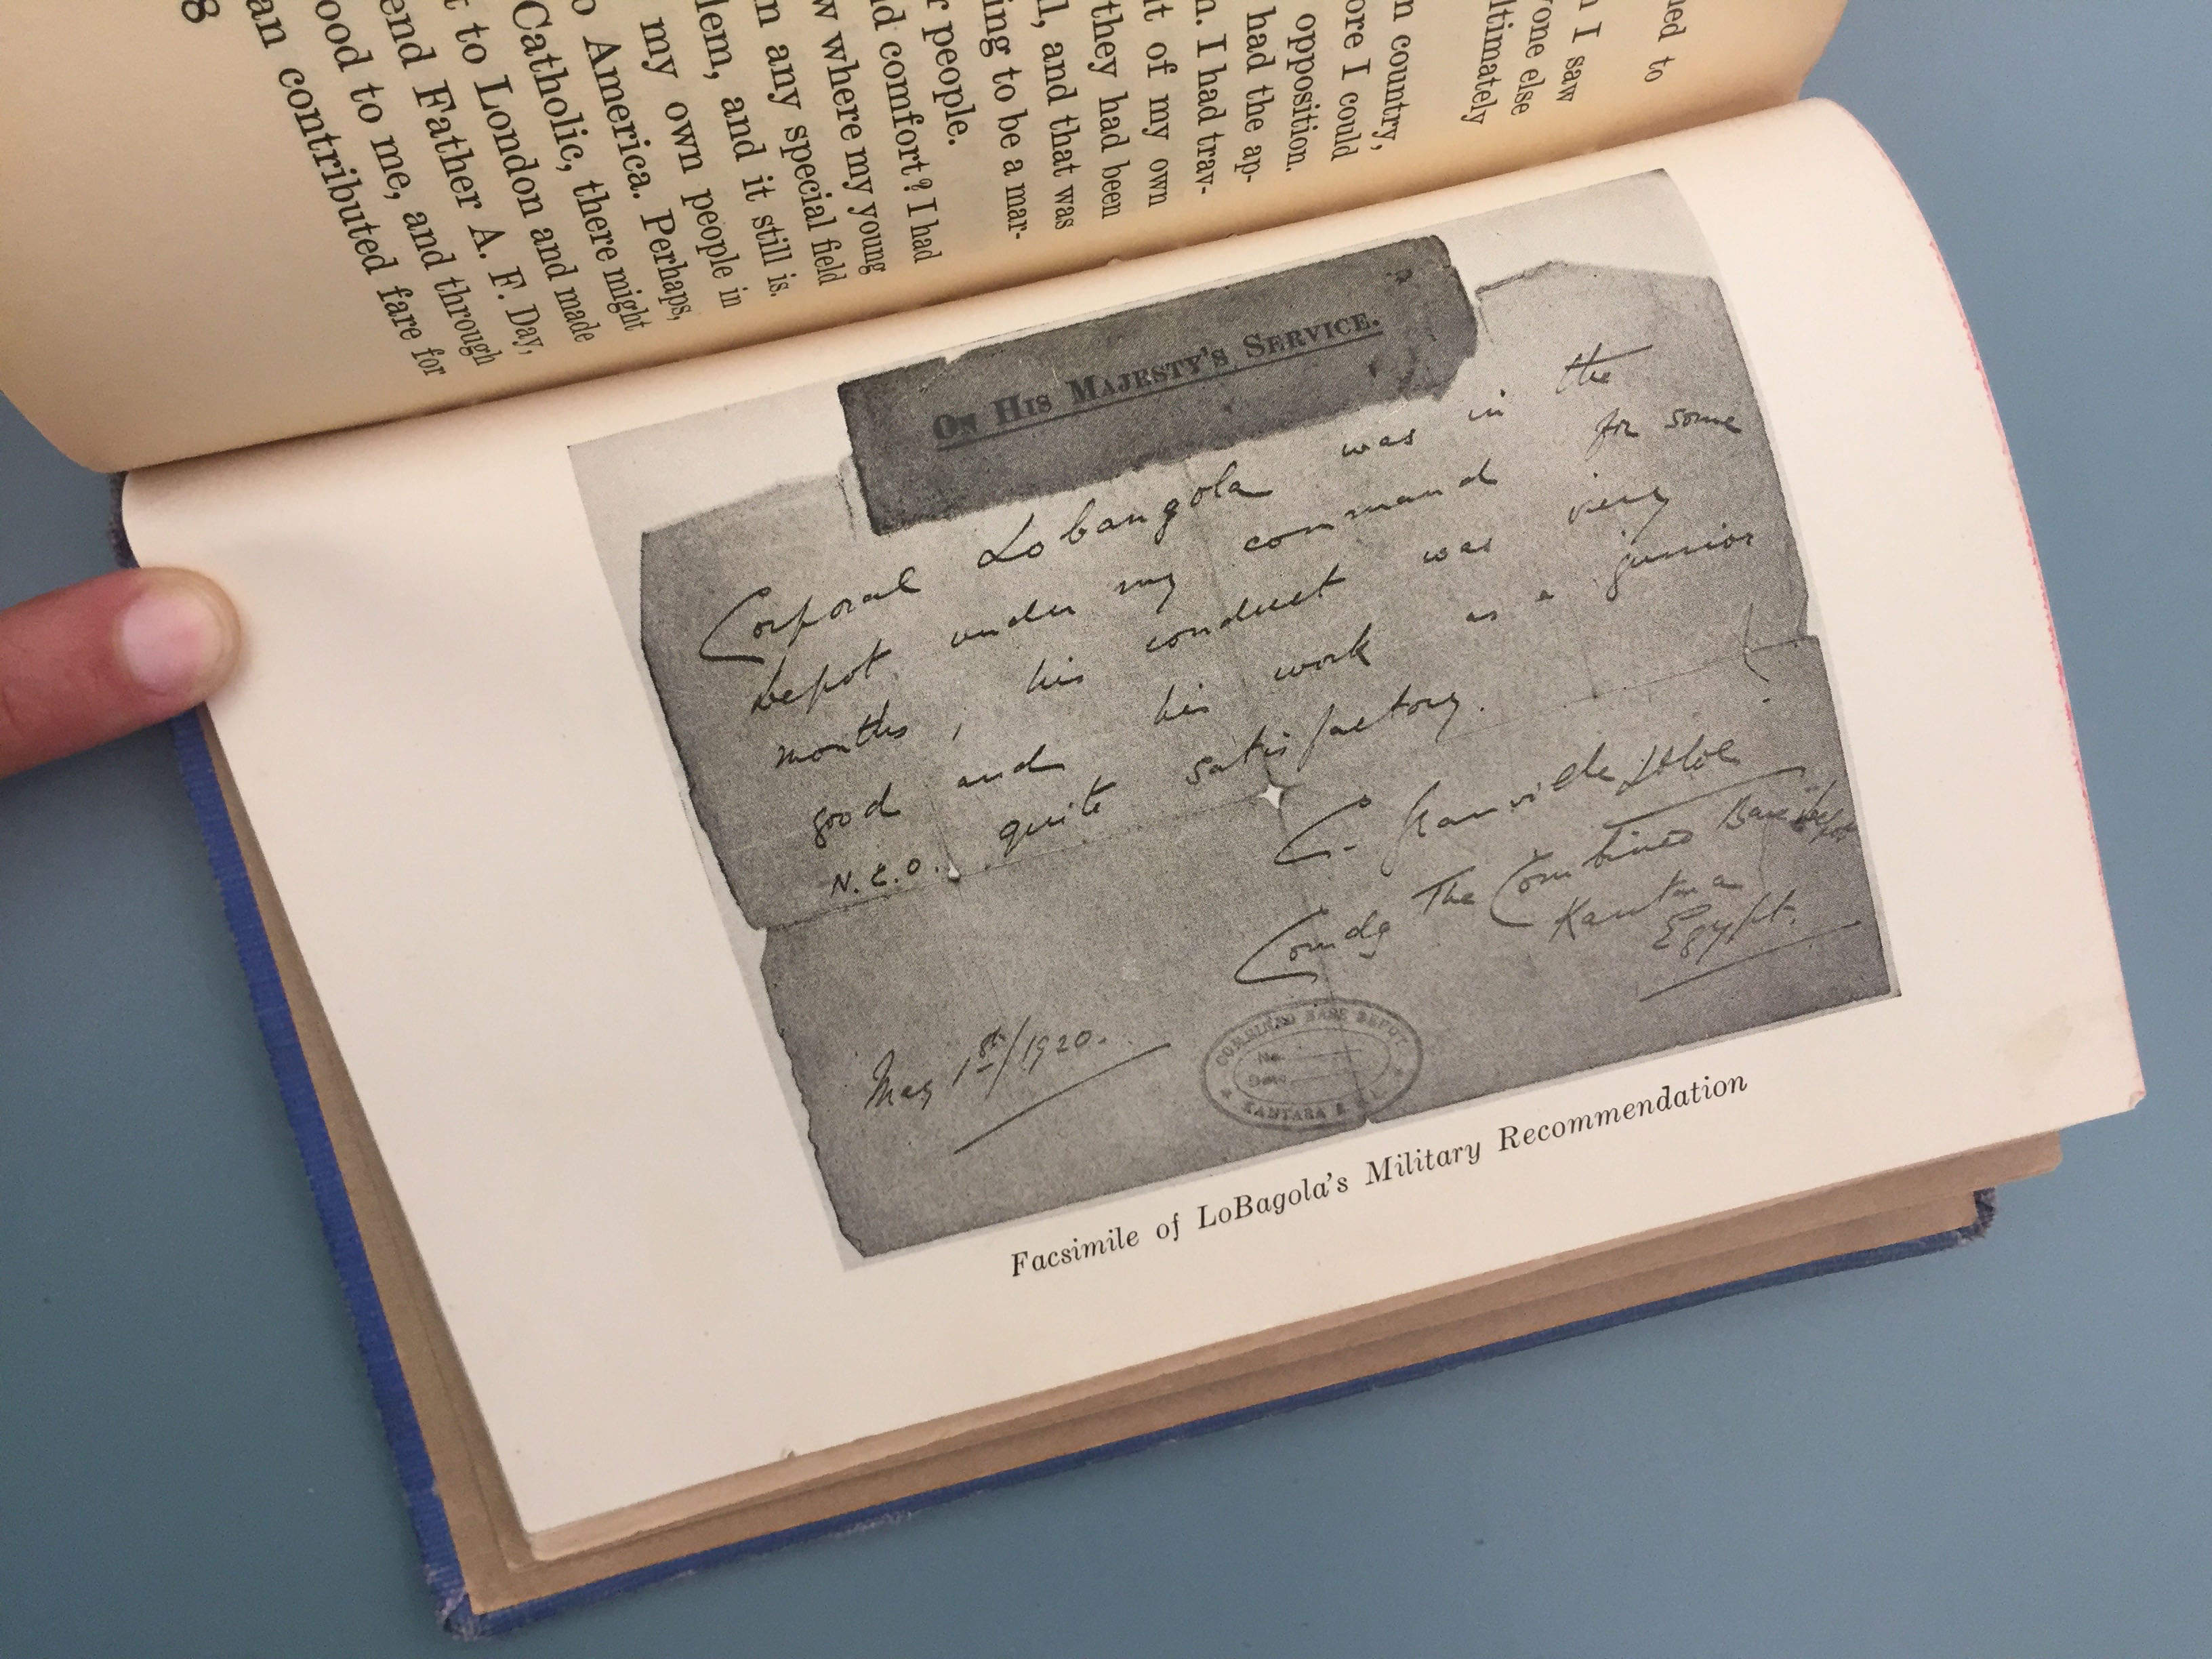 ned to
I saw
yone else
ltimately
n country,
ore I could
opposition.
had the ap-
n. I had trav-
t of my own
they had been
l, and that was
ing to be a mar-
r people.
d comfort? I had
w where my young
n any special field
lem, and it still is.
my own people in
o America. Perhaps,
Catholic, there might
t to London and made
end Father A. F. Day,
ood to me, and through
an contributed fare for
ON HIS MAJESTY'S SERVICE.
Corporal Lobangola was in the
Depot under my command for some
months, his conduct was very
good and his work as a junior
N.C.O. quite satisfactory.
C. Granville
Comdg The Combined Base Depot
Kantara
Egypt.
May 1st/1920.
COMBINED BASE DEPOT
No.
Date
KANTARA E.
Facsimile of LoBagola's Military Recommendation